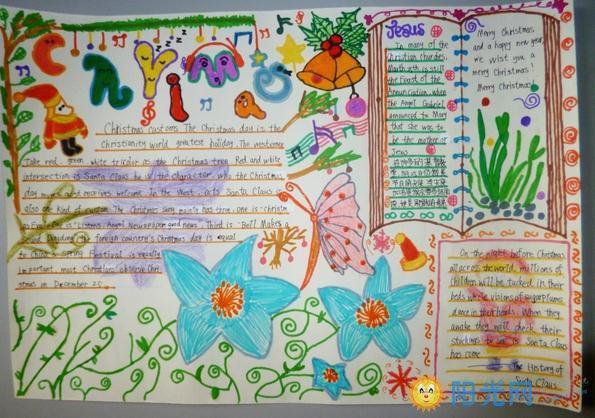 Christmas
Christmas customs The Christmas day is the
Christianity world greatest holiday. The westerner
Take red, green, white tricolor as the Christmas tree. Red and white
intersection is Santa Claus, he is the character, who the Christmas
day most receives welcome. In the West, acts Santa Claus is
also one kind of custom. The Christmas song mainly has three, one is Christmas
Eve one is "Listens Angel Newspaper good news" Third is "Bell Makes a
foreign country's Christmas day is equal
to China's Spring Festival is equally
important, most Christian observe Chri
stmas on December 25
Jesus
In many of the
Christian Churches,
March 25th is still
the Feast of the
Annunciation, when
the Angel Gabriel
announced to Mary
that she was to
be the mother of
Jesus
Merry Christmas
and a happy new year,
We wist you a
merry Christmas!
Merry Christmas
On the night before Christmas
all across the world, millions of
children will be tucked in their
beds while visions of sugarplums
dance in their heads. When they
awake they will check their
stockings to see is Santa Claus
has come.
The History of
Santa Claus
阳光网